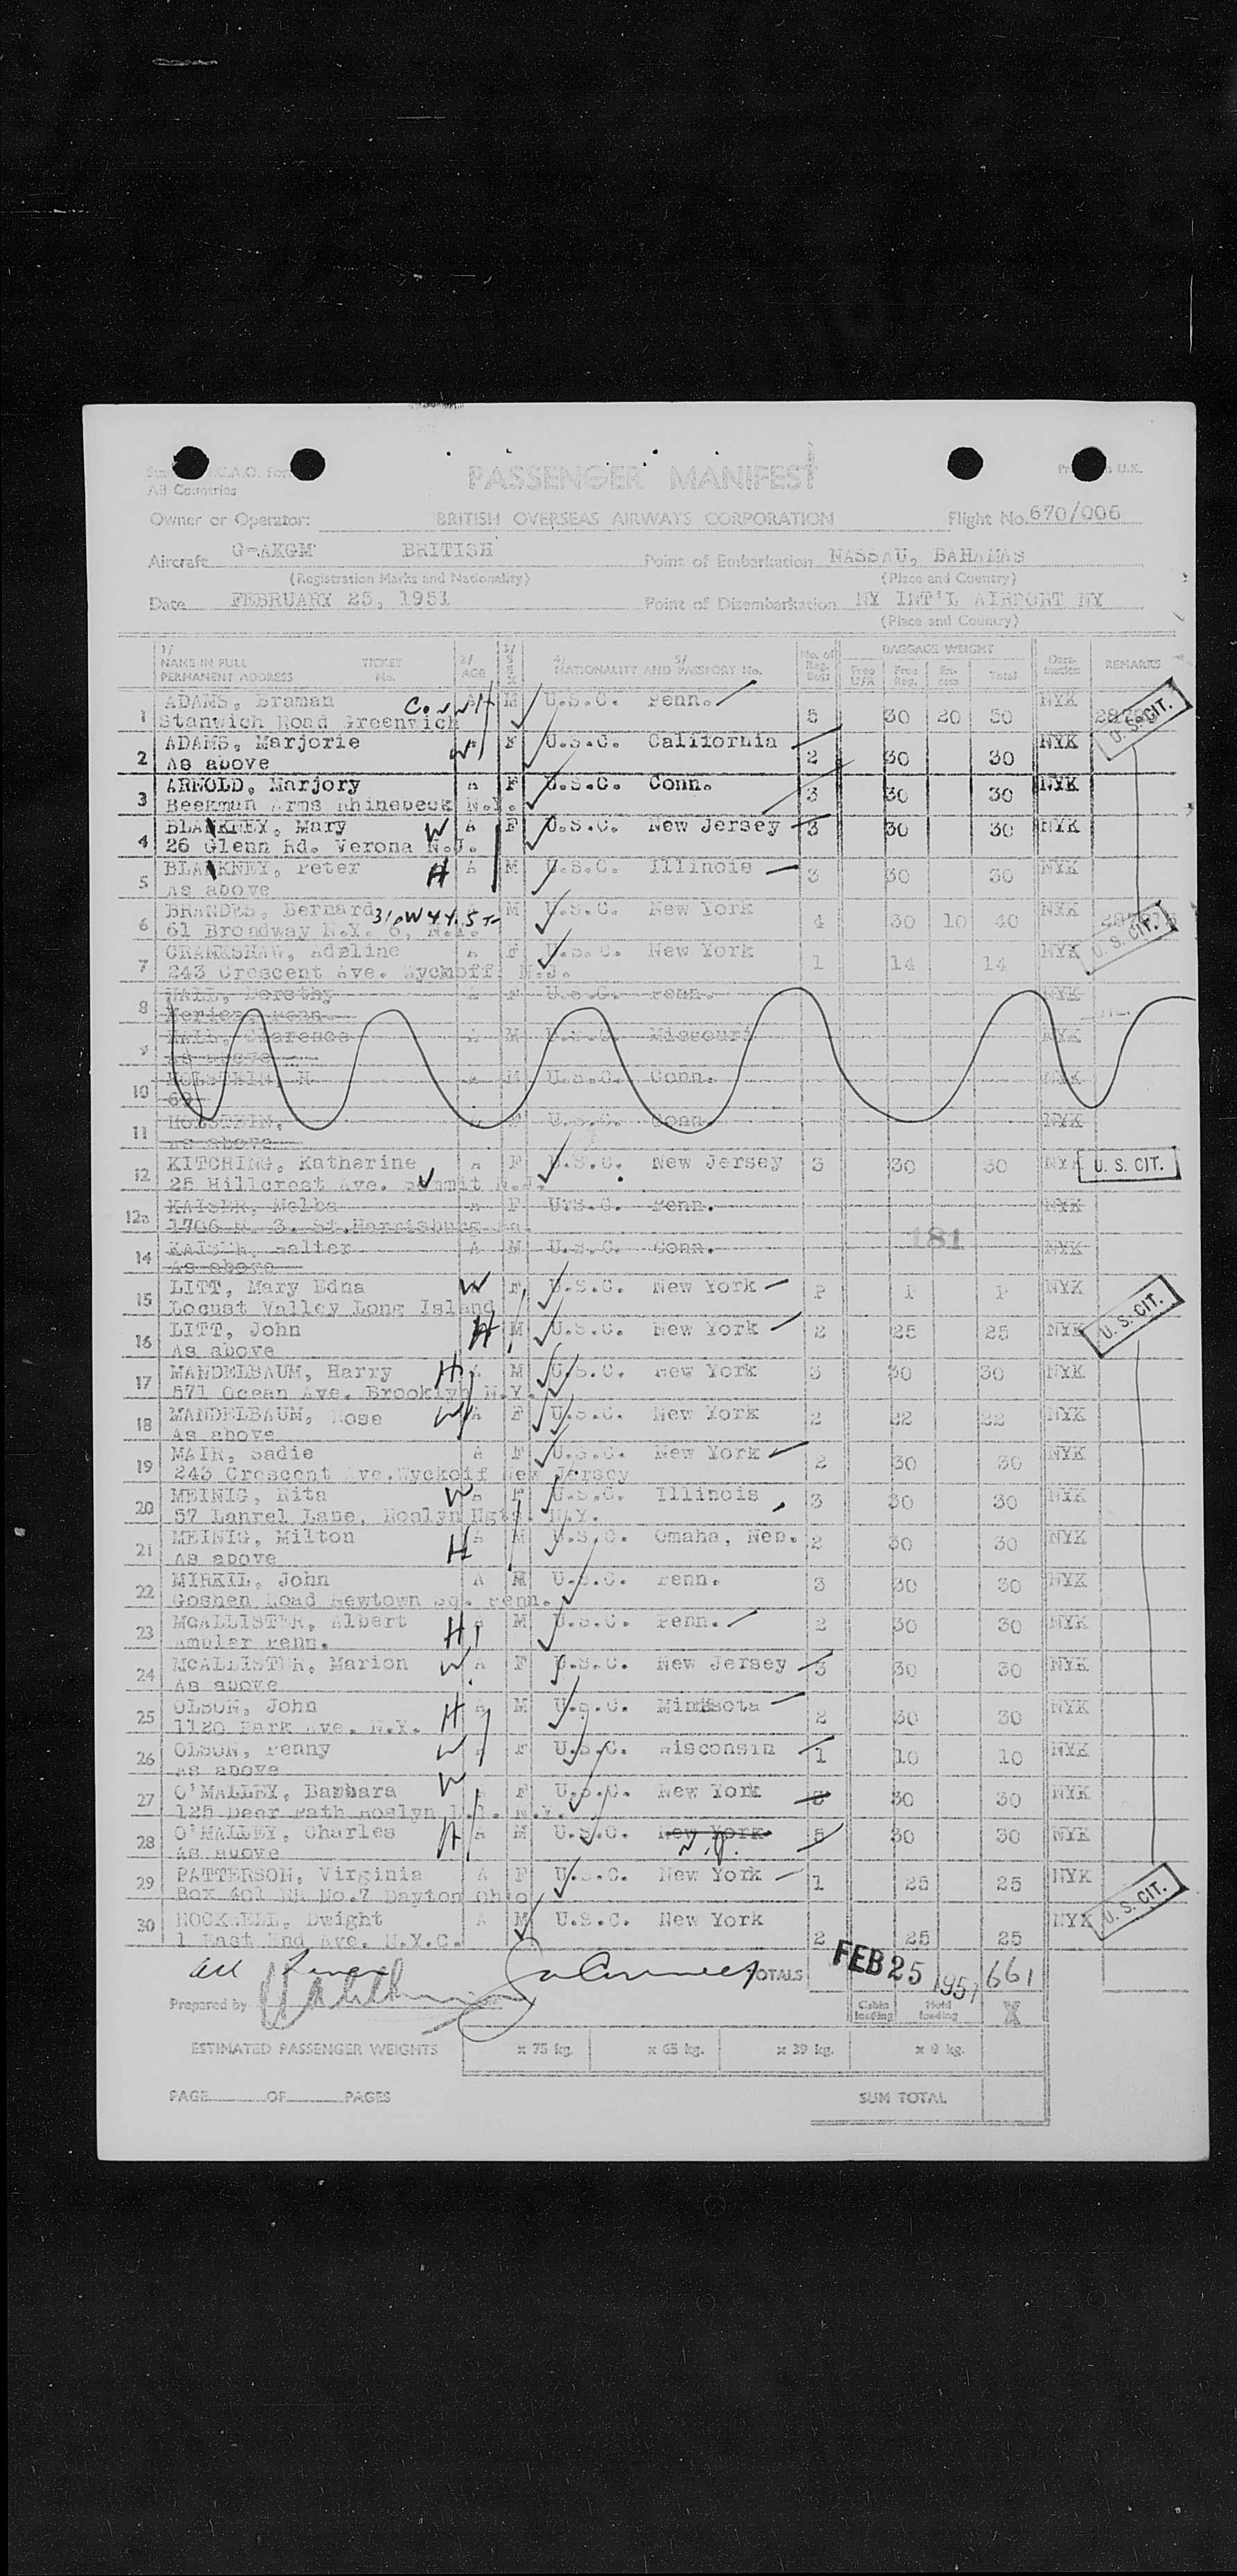 All Countries
PASSENGER MANIFEST
Owner or Operator: BRITISH OVERSEAS AIRWAYS CORPORATION Flight No. 670/006
Aircraft G-AKGM BRITISH Point of Embarkation NASSAU, BAHAMAS
(Registration Marks and Nationality) (Place and Country)
Date FEBRUARY 25, 1951 Point of Disembarkation NY INT'L AIRPORT NY
(Place and Country)
1/ NAME IN FULL TICKET No. 2/ AGE 3/ SEX 4/ NATIONALITY AND 5/ PASSPORT No. No. of BAGGAGE WEIGHT Total REMARKS
PERMANENT ADDRESS
1 ADAMS, Braman M U.S.C. Penn. 5 30 20 50 NYK U. S. CIT.
Stanwich Road Greenwich Conn
2 ADAMS, Marjorie W F U.S.C. California 2 30 30 NYK
As above
3 ARNOLD, Marjory A F U.S.C. Conn. 3 30 30 NYK
Beekman Arms Rhinebeck N.Y.
4 BLAKNEY, Mary W A F U.S.C. New Jersey 3 30 30 NYK
26 Glenn Rd. Verona N.J.
5 BLAKNEY, Peter H A M U.S.C. Illinois 3 30 30 NYK
As above
6 BRANDES, Bernard 310 W 44 St M U.S.C. New York 4 30 10 40 NYK U. S. CIT.
61 Broadway N.Y. 6, N.Y.
7 CRAMKSHAW, Adeline A F U.S.C. New York 1 14 14 NYK
243 Crescent Ave. Wyckoff N.J.
8 HALL, Dorothy A F U.S.C. Penn. NYK
Merion, Penn.
9 HALL, Clarence A M U.S.C. Missouri NYK
As above
10 HOLSTEIN, H M U.S.C. Conn. NYK
11 HOLSTEIN, F U.S.C. Conn. NYK
As above
12 KITCHING, Katherine A F U.S.C. New Jersey 3 30 30 NYK U. S. CIT.
25 Hillcrest Ave. Summit N.J.
12a KAISER, Melba A F U.S.C. Penn. NYK
1706 N. 3. St. Harrisburg Pa.
181
14 KAISER, Walter A M U.S.C. Conn. NYK
As above
15 LITT, Mary Edna W F U.S.C. New York P P P NYK
Locust Valley Long Island
16 LITT, John H M U.S.C. New York 2 25 25 NYK U. S. CIT.
As above
17 MANDELBAUM, Harry H A M U.S.C. New York 3 30 30 NYK
571 Ocean Ave. Brooklyn N.Y.
18 MANDELBAUM, Rose W A F U.S.C. New York 2 22 22 NYK
As above
19 MAIR, Sadie A F U.S.C. New York 2 30 30 NYK
243 Crescent Ave. Wyckoff New Jersey
20 MEINIG, Rita W A F U.S.C. Illinois 3 30 30 NYK
57 Lanrel Lane, Roslyn Hgts. N.Y.
21 MEINIG, Milton H A M U.S.C. Omaha, Neb. 2 30 30 NYK
As above
22 MIRKIL, John A M U.S.C. Penn. 3 30 30 NYK
Goshen Load Newtown Sq. Penn.
23 McALLISTER, Albert H M U.S.C. Penn. 2 30 30 NYK
Ambler Penn.
24 McALLISTER, Marion W A F U.S.C. New Jersey 3 30 30 NYK
As above
25 OLSON, John H A M U.S.C. 2 30 30 NYK
1120 Park Ave. N.Y.
26 OLSON, Penny W F U.S.C. Wisconsin 1 10 10 NYK
As above
27 O'MALLEY, Barbara W F U.S.C. New York 30 30 NYK
125 Dear Path Roslyn L.I. N.Y.
28 O'MALLEY, Charles H A M U.S.C. New York 5 30 30 NYK
As above
29 PATTERSON, Virginia A F U.S.C. New York 1 25 25 NYK
Box 401 RR No.7 Dayton Ohio
30 ROCKWELL, Dwight A M U.S.C. New York 2 25 25 NYK U. S. CIT.
1 East End Ave. N.Y.C.
All TOTALS FEB 25 1951 661
Prepared by Cabin loading Hold loading X
ESTIMATED PASSENGER WEIGHTS x 75 kg. x 65 kg. x 39 kg. x 9 kg.
PAGE OF PAGES SUM TOTAL